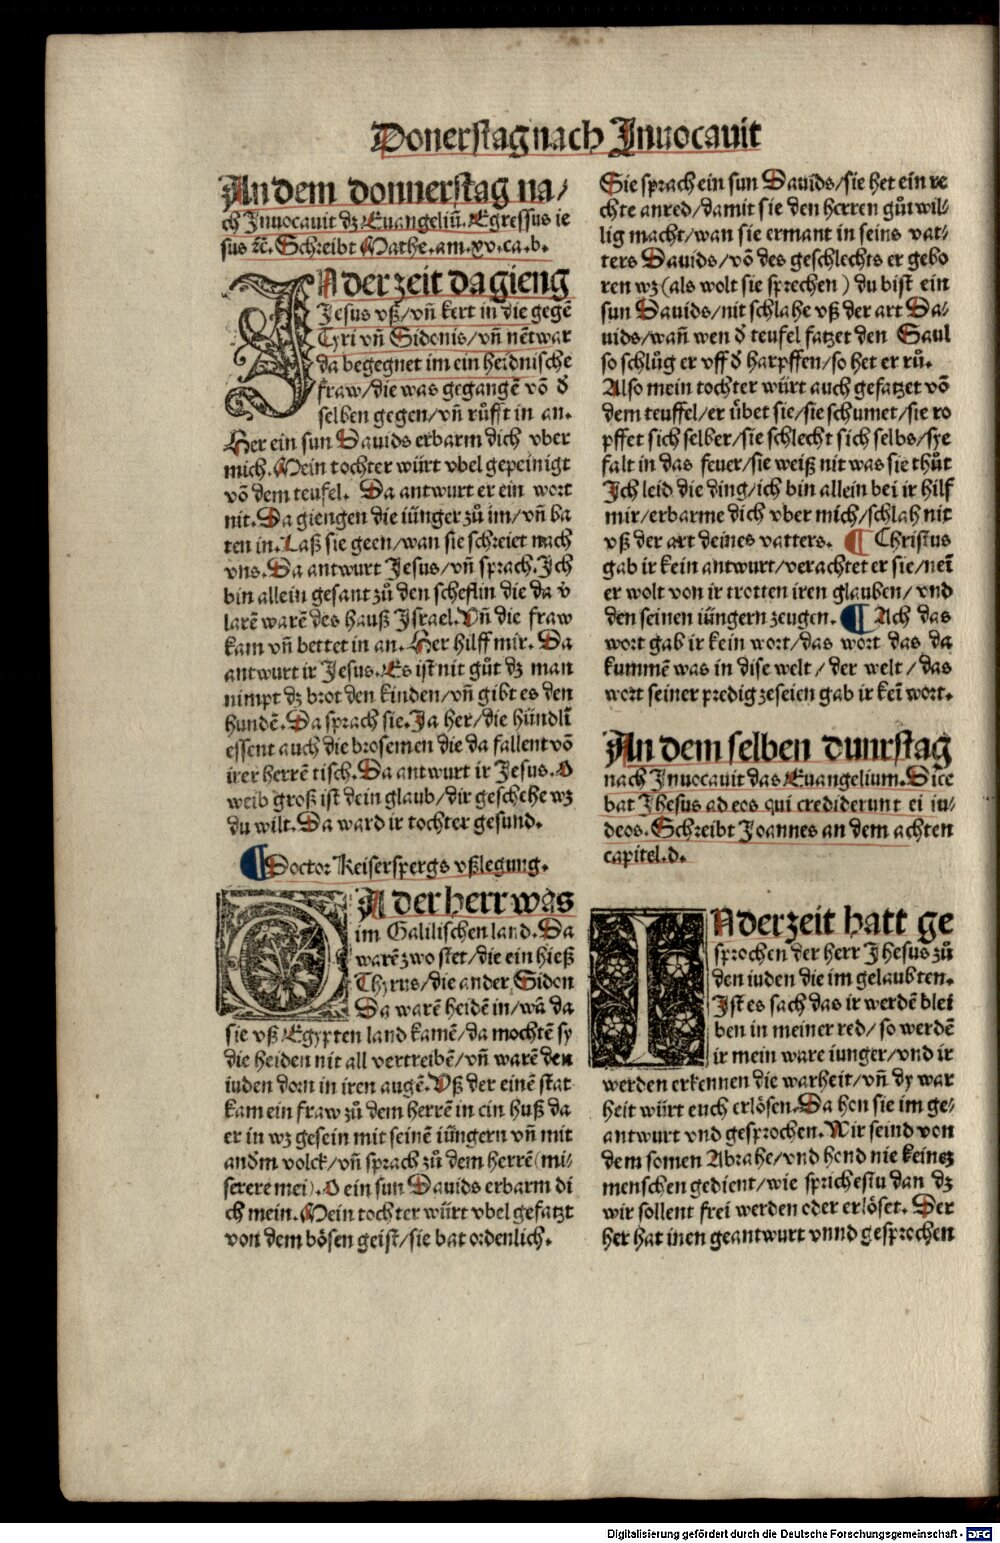 Donerstag nach Inuocauit
An dem donnerstag na/
ch Inuocauit dz Euangeliū. Egressus ie
sus ꝛc̄. Schreibt Mathe. am. xv. ca. b.
IN der zeit da gieng
Jesus vß/vn̄ kert in die gegē
Tyri vn̄ Sidonis/vn̄ nēt war
da begegnet im ein heidnische
fraw/die was gegangē vō d̕
selben gegen/vn̄ růfft in an.
Her ein sun Dauids erbarm dich vber
mich. Mein tochter würt vbel gepeinigt
vō dem teufel. Da antwurt er ein wort
nit. Da giengen die iünger zů im/vn̄ ba
ten in. Laß sie geen/wan sie schreiet nach
vns. Da antwurt Jesus/vn̄ sprach. Ich
bin allein gesant zů den scheflin die da v̕
larē warē des hauß Israel. Vn̄ die fraw
kam vn̄ bettet in an. Her hilff mir. Da
antwurt ir Jesus. Es ist nit gůt dz man
nimpt dz brot den kinden/vn̄ gibt es den
hundē. Da sprach sie. Ja her/die hündlī
essent auch die brosemen die da fallent vō
irer herrē tisch. Da antwurt ir Jesus. O
weib groß ist dein glaub/dir geschehe wz
du wilt. Da ward ir tochter gesund.
¶ Doctor Keiserspergs vßlegung.
DA der herr was
im Galilischen land. Da
warē zwo stet/die ein hieß
Thyrus/die ander Sidon
Da warē heidē in/wā da
sie vß Egypten land kamē/da mochtē sy
die heiden nit all vertreibē/vn̄ warē den
iuden dorn in iren augē. Vß der einē stat
kam ein fraw zů dem herrē in ein huß da
er in wz gesein mit seinē iüngern vn̄ mit
and̕m volck/vn̄ sprach zů dem herrē (mi/
serere mei). O ein sun Dauids erbarm di
ch mein. Mein tochter würt vbel gefatzt
von dem bösen geist/sie bat ordenlich.
Sie sprach ein sun Dauids/sie het ein re
chte anred/damit sie den herren gůtwil/
lig macht/wan sie ermant in seins vat/
ters Dauids/vō des geschlechts er gebo
ren wz (als wolt sie sprechen) du bist ein
sun Dauids/nit schlahe vß der art Da/
uids/wan̄ wen d̕ teufel fatzet den Saul
so schlůg er vff d̕ harpffen/so het er rů.
Also mein tochter würt auch gefatzet vō
dem teuffel/er übet sie/sie schumet/sie ro
pffet sich selber/sie schlecht sich selbs/sye
falt in das feuer/sie weiß nit was sie thůt
Ich leid die ding/ich bin allein bei ir hilf
mir/erbarme dich vber mich/schlah nit
vß der art deines vatters. ¶ Christus
gab ir kein antwurt/verachtet er sie/neī
er wolt von ir trotten iren glauben/vnd
den seinen iüngern zeugen. ¶ Ach das
wort gab ir kein wort/das wort das da
kummē was in dise welt/der welt/das
wort seiner predig zeseien gab ir keī wort.
An dem selben dunrstag
nach Inuocauit das Euangelium. Dice
bat Jhesus ad eos qui crediderunt ei iu/
deos. Schreibt Joannes an dem achten
capitel. d.
IN der zeit hatt ge
sprochen der herr Jhesus zů
den iuden die im gelaubten.
Ist es sach das ir werdē blei
ben in meiner red/so werdē
ir mein ware iunger/vnd ir
werden erkennen die warheit/vn̄ dy war
heit würt euch erlösen. Da hon sie im ge/
antwurt vnd gesprochen. Wir seind von
dem somen Abrahe/vnd hond nie keinez
menschen gedient/wie sprichestu dan dz
wir sollent frei werden oder erlöset. Der
her hat inen geantwurt vnnd gesprochen
Digitalisierung gefördert durch die Deutsche Forschungsgemeinschaft - DFG